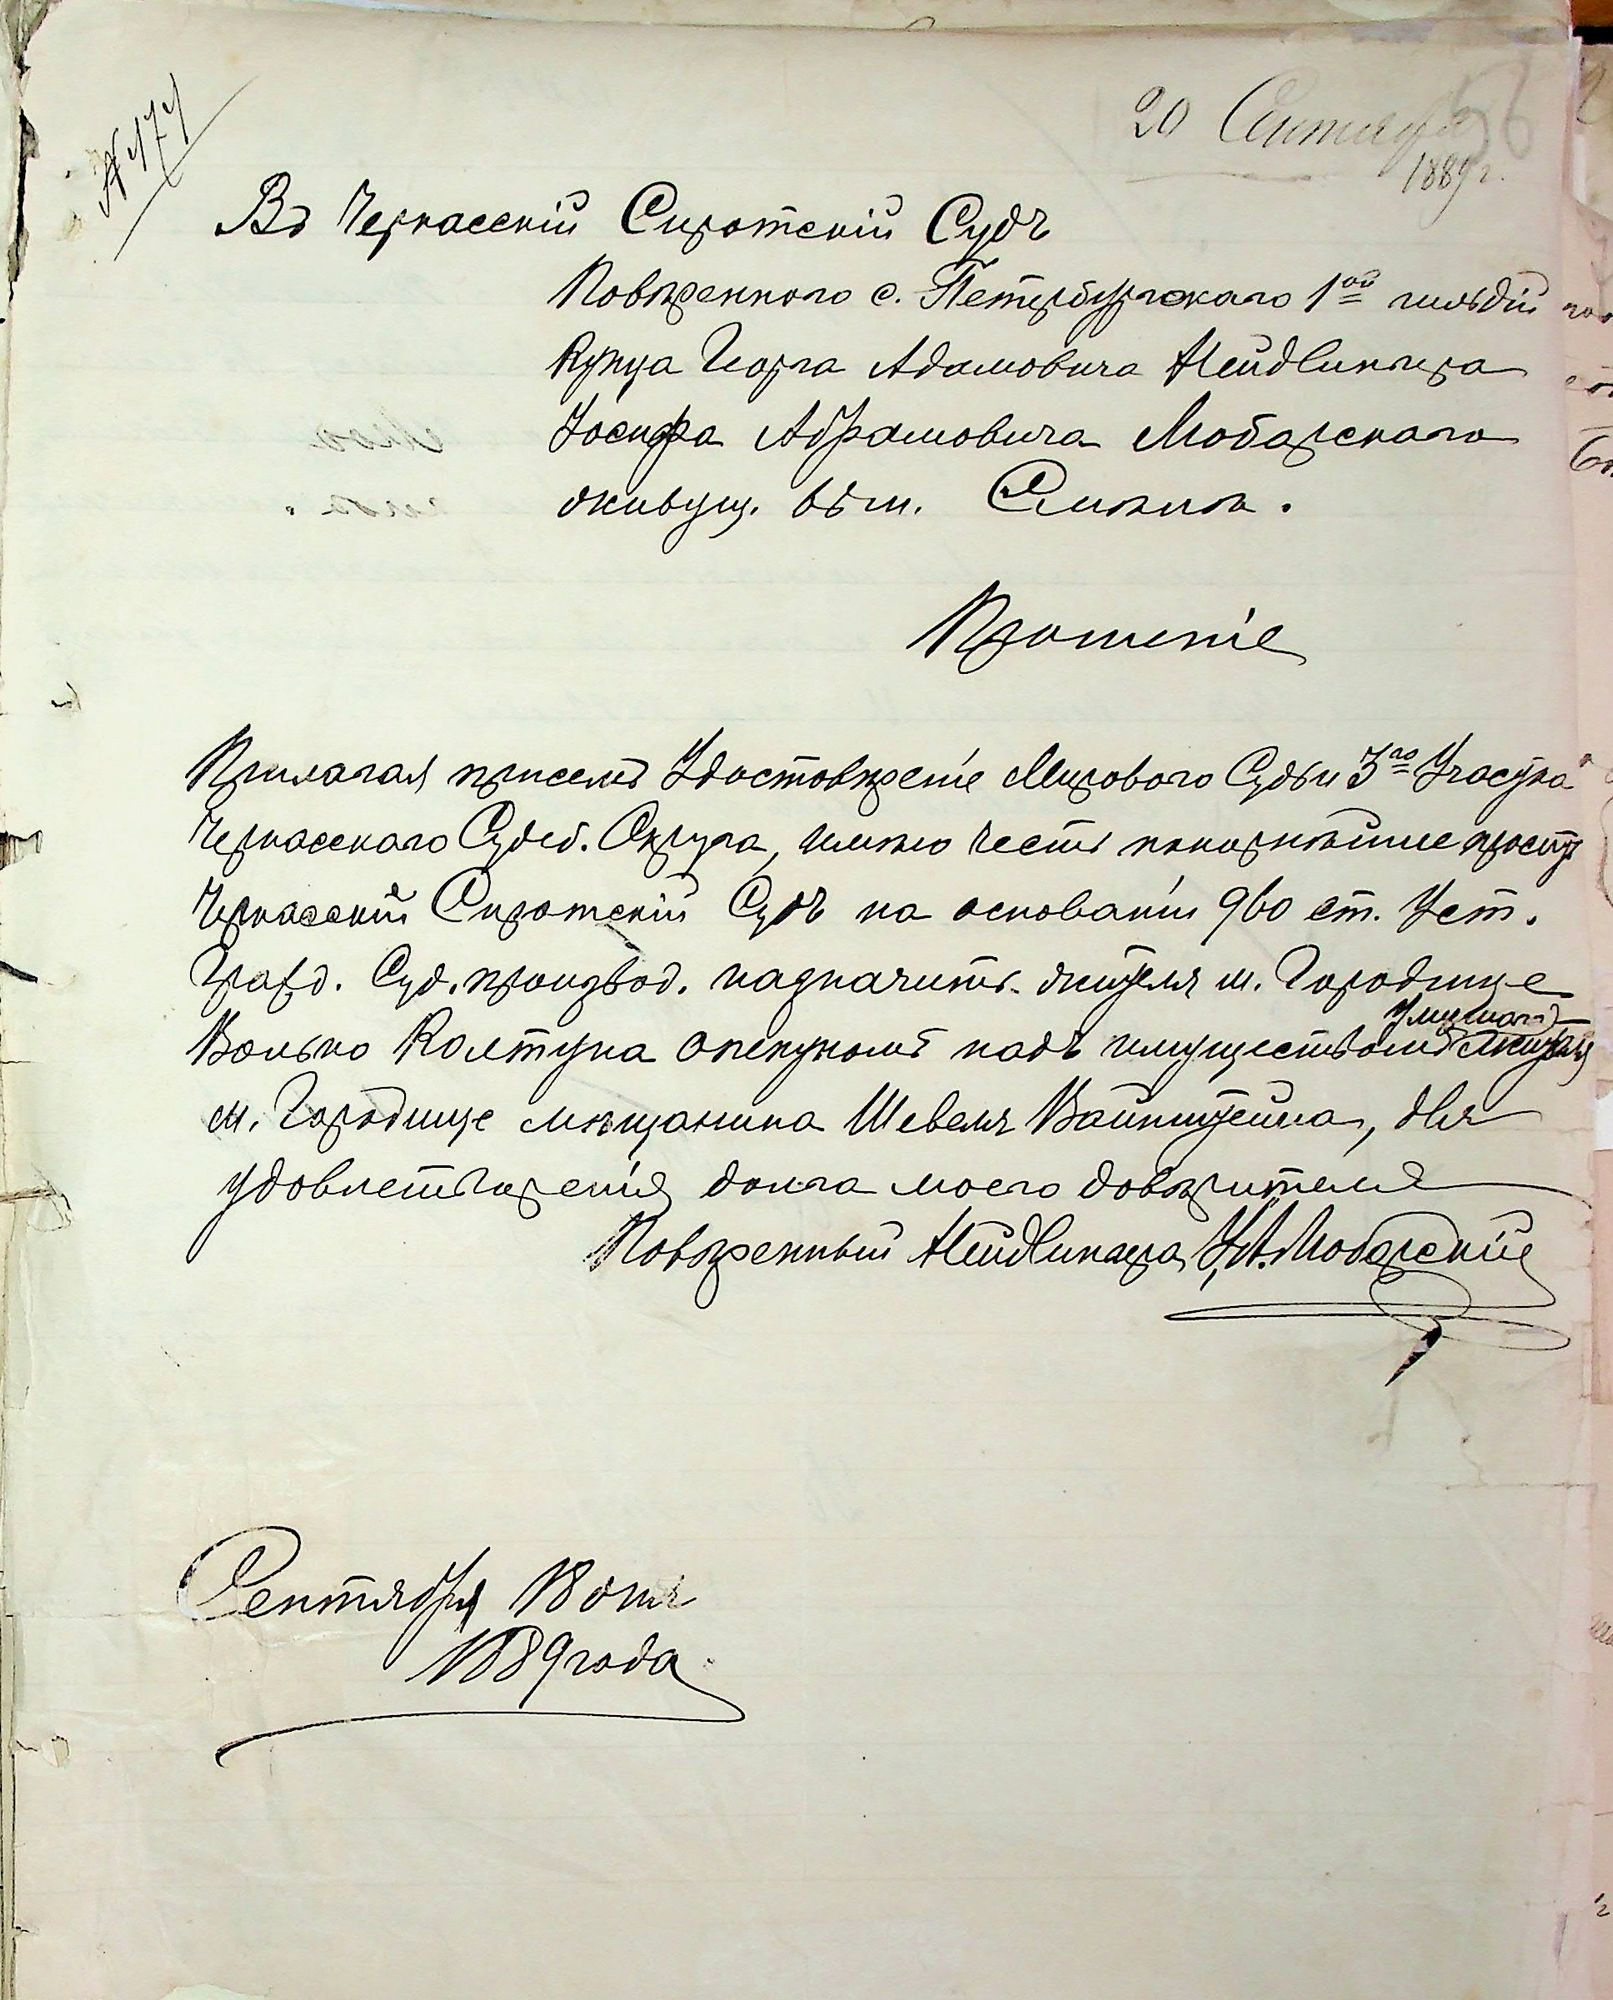 № 177
20 Сентября 56
1889 г.
Въ Черкасскій Сиротскій Судъ
Повѣренного с. Петербургскаго 1ой гильдіи
Купца Георга Адамовича Нейдлингера
Іосифа Абрамовича Мобарскаго
живущ. въ м. Смѣлѣ.
Прошеніе
Прилагая присемъ Удостовѣреніе Мирового Судьи 3го Участка
Черкасскаго Судеб. Округа, имѣю честь покорнѣйше просить
Черкасскій Сиротскій Судъ на основаніи 960 ст. Уст.
Гражд. Суд. производ. назначить жителя м. Городище
Волько Колтуна опекуномъ надъ имуществомъ умершаго жителя
м. Городище мѣщанина Шевеля Вайнштейна, для
удовлетворенія долга моего довѣрителя
Повѣренный Нейдлингера І. А. Мобарскій
Сентября 18 дня
1889 года